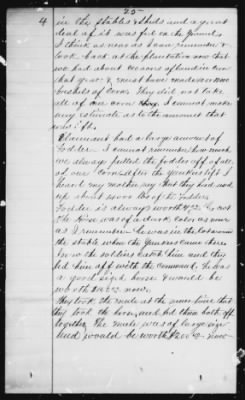 25
4
in the stables & sheds and a great
deal of it was fed on the ground.
I think as near as I can remember &
look back at the plantation now that
we had about acres of land in corn
that year & must have made
bushels of corn. They did not take
all of our corn. I cannot make
any estimate as to the amount that
was left.
Claimant had a large amount of
fodder. I cannot remember how much
we always pulled the fodder off of all
of our corn. After the yankees left I
heard my mother say that they had used
up about of fodder.
Fodder is always worth
The Horse was of a dark color as near
as I remember he was in the lot around
the stable when the Yankees came there.
I saw the soldiers catch him and then
led him off with the command. He was
a good sized horse & would be
worth now.
They took the mule at the same time that
they took the horse, and led them both off
together. The mule was of large size
and would be worth $200 now